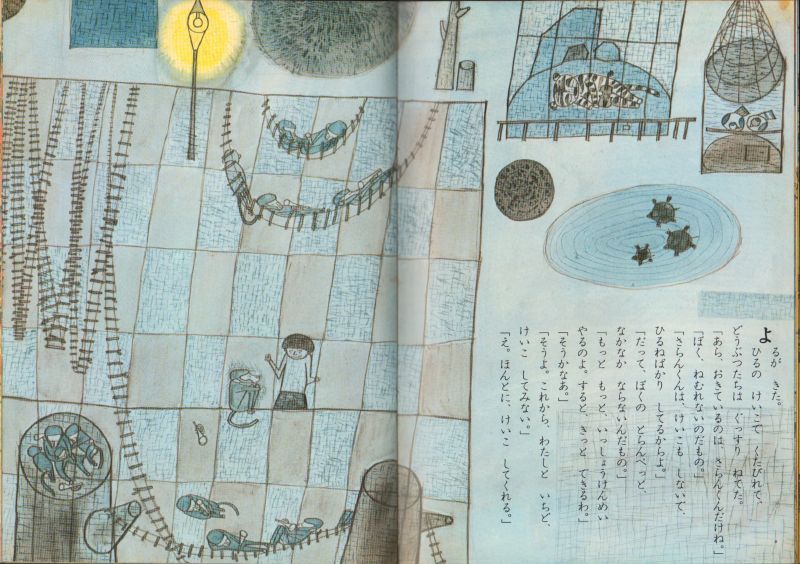 よるが　きた。
ひるの　けいこで　くたびれて、
どうぶつたちは　ぐっすり　ねてた。
「あら、おきているのは　さらんくんだけね。」
「ぼく、ねむれないのだもの。」
「さらんくんは、けいこも　しないで、
ひるねばかり　してるからよ。」
「だって、ぼくの　とらんぺっと、
なかなか　ならないんだもの。」
「もっと　もっと、いっしょうけんめい
やるのよ。すると、きっと　できるわ。」
「そうかなあ。」
「そうよ。これから、わたしと　いちど、
けいこ　してみない。」
「え。ほんとに、けいこ　してくれる。」